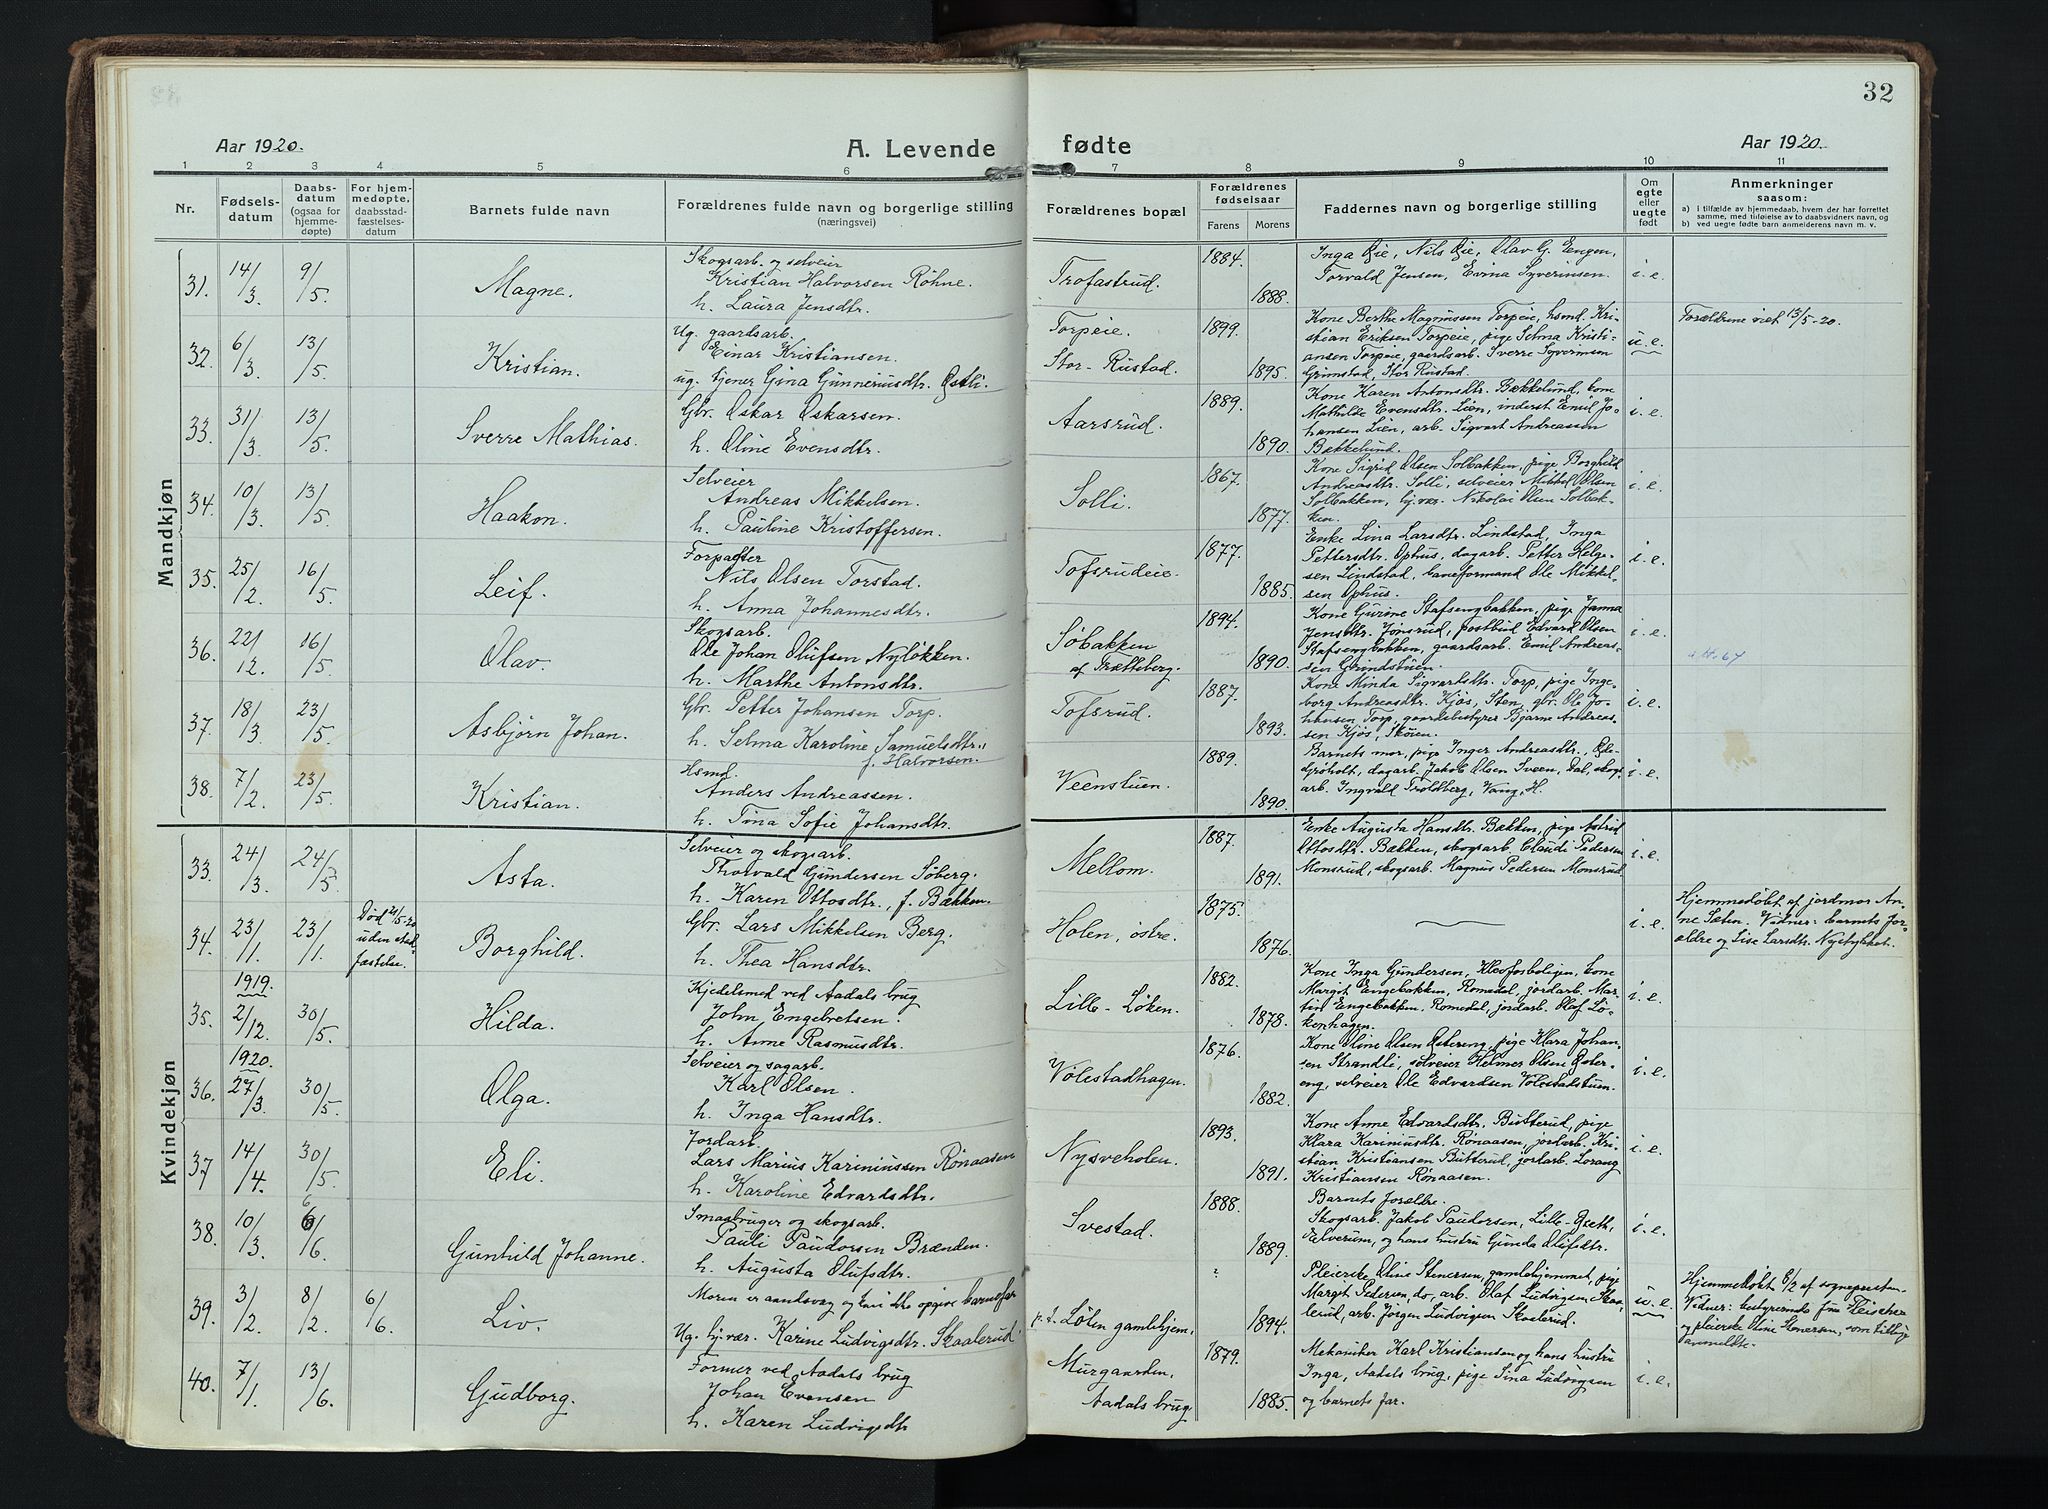 32
Aar 1920.
A. Levende fødte
Aar 1920.
1 2 3 4 5 6 7 8 9 10 11
Nr.
Fødsels-
datum
Daabs-
datum
(ogsaa for
hjemme-
døpte)
For hjem-
medøpte,
daabsstad-
fæstelses-
datum
Barnets fulde navn
Forældrenes fulde navn og borgerlige stilling
(næringsvei)
Forældrenes bopæl
Forældrenes
fødselsaar
Farens Morens
Faddernes navn og borgerlige stilling
Om
egte
eller
uegte
født
Anmerkninger
saasom:
a) i tilfælde av hjemmedaab, hvem der har forrettet
samme, med tilføielse av to daabsvidners navn, og
b) ved uegte fødte barn anmelderens navn m. v.
Mandkjøn
31. 14/3. 9/5. Magne.
Skogsarb. og selveier
Kristian Halvorsen Röhne.
h. Laura Jensdtr.
Trofastrud.
1884.
1888.
Inga Øie, Nils Øie, Olav G. Engen,
Torvald Jensen, Evina Syverinsen.
i. e.
32. 6/3. 13/5. Kristian.
Ug. gaardsarb.
Einar Kristiansen.
ug. tjener Gina Gunneriusdtr. Østli.
Torpeie.
Stor-Rustad.
1899.
1895.
Kone Berthe Magnussen Torpeie, hsmd. Kri-
stian Eriksen Torpeie, pige Selma Kristi-
ansen Torpeie, gaardsarb. Sverre Syversen
Grimstad, Stor Rustad.
u. e.
Forældrene viet 13/5-20.
33. 31/3. 13/5. Sverre Mathias.
Gbr. Oskar Oskarsen.
h. Oline Evensdtr.
Aarsrud.
1889.
1890.
Kone Karen Antonsdtr. Bækkelund, kone
Mathilde Evensdtr. Lien, inderst Emil Jo-
hansen Lien, arb. Sigvart Andreassen
Bækkelund.
i. e.
34. 10/3. 13/5. Haakon.
Selveier
Andreas Mikkelsen.
h. Pauline Kristoffersen.
Solli.
1867.
1877.
Kone Sigrid Olsen Solbakken, pige Borghild
Andreasdtr. Solli, selveier Mikkel Olsen
Solbakken, hj.vær. Nikolai Olsen Solbak-
ken.
i. e.
35. 25/2. 16/5. Leif.
Forpagter
Nils Olsen Torstad.
h. Anna Johannesdtr.
Tofsrudeie.
1877.
1885.
Enke Lina Larsdtr. Lindstad, Inga
Pettersdtr. Ophus, dagarb. Petter Helge-
sen Lindstad, baneformand Ole Mikkel-
sen Ophus.
i. e.
36. 22/12. 16/5. Olav.
Skogsarb.
Ole Johan Olufsen Nyløkken.
h. Marthe Antonsdtr.
Søbakken
af Trætteberg.
1894.
1890.
Kone Gurine Stafsengbakken, pige Janna
Jensdtr. Jønsrud, postbud Edvard Olsen
Stafsengbakken, gaardsarb. Emil Andreas-
sen Grindstuen.
i. e.
37. 18/3. 23/5. Asbjørn Johan.
Gbr. Petter Johansen Torp.
h. Selma Karoline Samuelsdtr.,
f. Halvorsen.
Tofsrud.
1887.
1893.
Kone Minda Sigvartsdtr. Torp, pige Inge-
borg Andreasdtr. Kjøs, Sten, gbr. Ole Jo-
hansen Torp, gaardsbestyrer Bjarne Andreas-
sen Kjøs, Skøien.
i. e.
38. 7/2. 23/5. Kristian.
Hsmd.
Anders Andreassen.
h. Tina Sofie Johansdtr.
Veenstuen.
1889.
1890.
Barnets mor, pige Inger Andreasdtr., Øde-
Grøholt, dagarb. Jakob Olsen Sveen, Dal, skogs-
arb. Ingvald Troldberg, Vang, H.
i. e.
Kvindekjøn
33. 24/3. 24/5. Asta.
Selveier og skogsarb.
Thorvald Gundersen Søberg.
h. Karen Ottosdtr., f. Bækken.
Mellom.
1887.
1891.
Enke Augusta Hansdtr. Bækken, pige Astrid
Ottosdtr. Bækken, skogsarb. Claudi Pedersen
Monsrud, skogsarb. Magnus Pedersen Monsrud.
i. e.
34. 23/1. 23/1.
Død 21/5-20
uden stad-
fæstelse.
Borghild.
Gbr. Lars Mikkelsen Berg.
h. Thea Hansdtr.
Holen, østre.
1875.
1876.
i. e.
Hjemmedøbt af jordmor An-
ne Sæten. Vidner: barnets for-
ældre og Lise Larsdtr.
1919.
35. 2/12. 30/5. Hilda.
Kjedelsmed ved Aadals brug
John Engebretsen.
h. Anne Rasmusdtr.
Lille-Løken.
1882.
1878.
Kone Inga Gundersen, Klevfosboligen, kone
Margit Engebakken, Romedal, jordarb. Mar-
tin Engebakken, Romedal, jordarb. Olaf Lø-
kenhagen.
i. e.
1920.
36. 27/3. 30/5. Olga.
Selveier og sagarb.
Karl Olsen.
h. Inga Hansdtr.
Volestadhagen.
1876.
1882.
Kone Oline Olsen Østereng, pige Klara Johan-
sen Strandli, selveier Helmer Olsen Øster-
eng, selveier Ole Edvardsen Volestadstuen.
i. e.
37 14/4. 30/5. Eli.
Jordarb.
Lars Marius Kariniussen Rønaasen
h. Karoline Edvardsdtr.
Nysveholen.
1893.
1891.
Kone Anne Edvardsdtr. Butterud, pige
Klara Kariniusdtr. Rønaasen, jordarb. Kri-
stian Kristiansen Butterud, jordarb. Lorang
Kristiansen Rønaasen.
i. e.
38. 10/3. 6/6. Gunhild Johanne.
Smaabruger og skogsarb.
Pauli Paudorsen Brænden.
h. Augusta Olufsdtr.
Svestad.
1888.
1889.
Barnets forældre.
Skogsarb. Jakob Paudorsen, Lille-Grøth,
Elverum, og hans hustru Gunda Olufsdtr.
i. e.
39. 3/2. 8/2. 6/6. Liv.
Moren er aandsvag og kan ikke opgive barnefar
Ug. hj.vær. Karine Ludvigsdtr. Skaalerud
p. t. Løten gamlehjem.
?
1894.
Pleierske Oline Stenersen, gamlehjemmet, pige
Margit Pedersen, do, arb. Olaf Ludvigsen Skaa-
lerud, arb. Jørgen Ludvigsen Skaalerud.
u. e.
Hjemmedøbt 8/2 af sognepresten.
Vidner: bestyrerinde fru Fleischer
og pleierske Oline Stenersen, som tillige
anmeldte.
40. 7/1. 13/6. Gudborg.
Former ved Aadals brug
Johan Evensen
h. Karen Ludvigsdtr
Murgaarden,
Aadals brug.
1879.
1885.
Mekaniker Karl Kristiansen og hans hustru
Inga, Aadals brug, pige Sina Ludvigsen
og barnets far.
i. e.